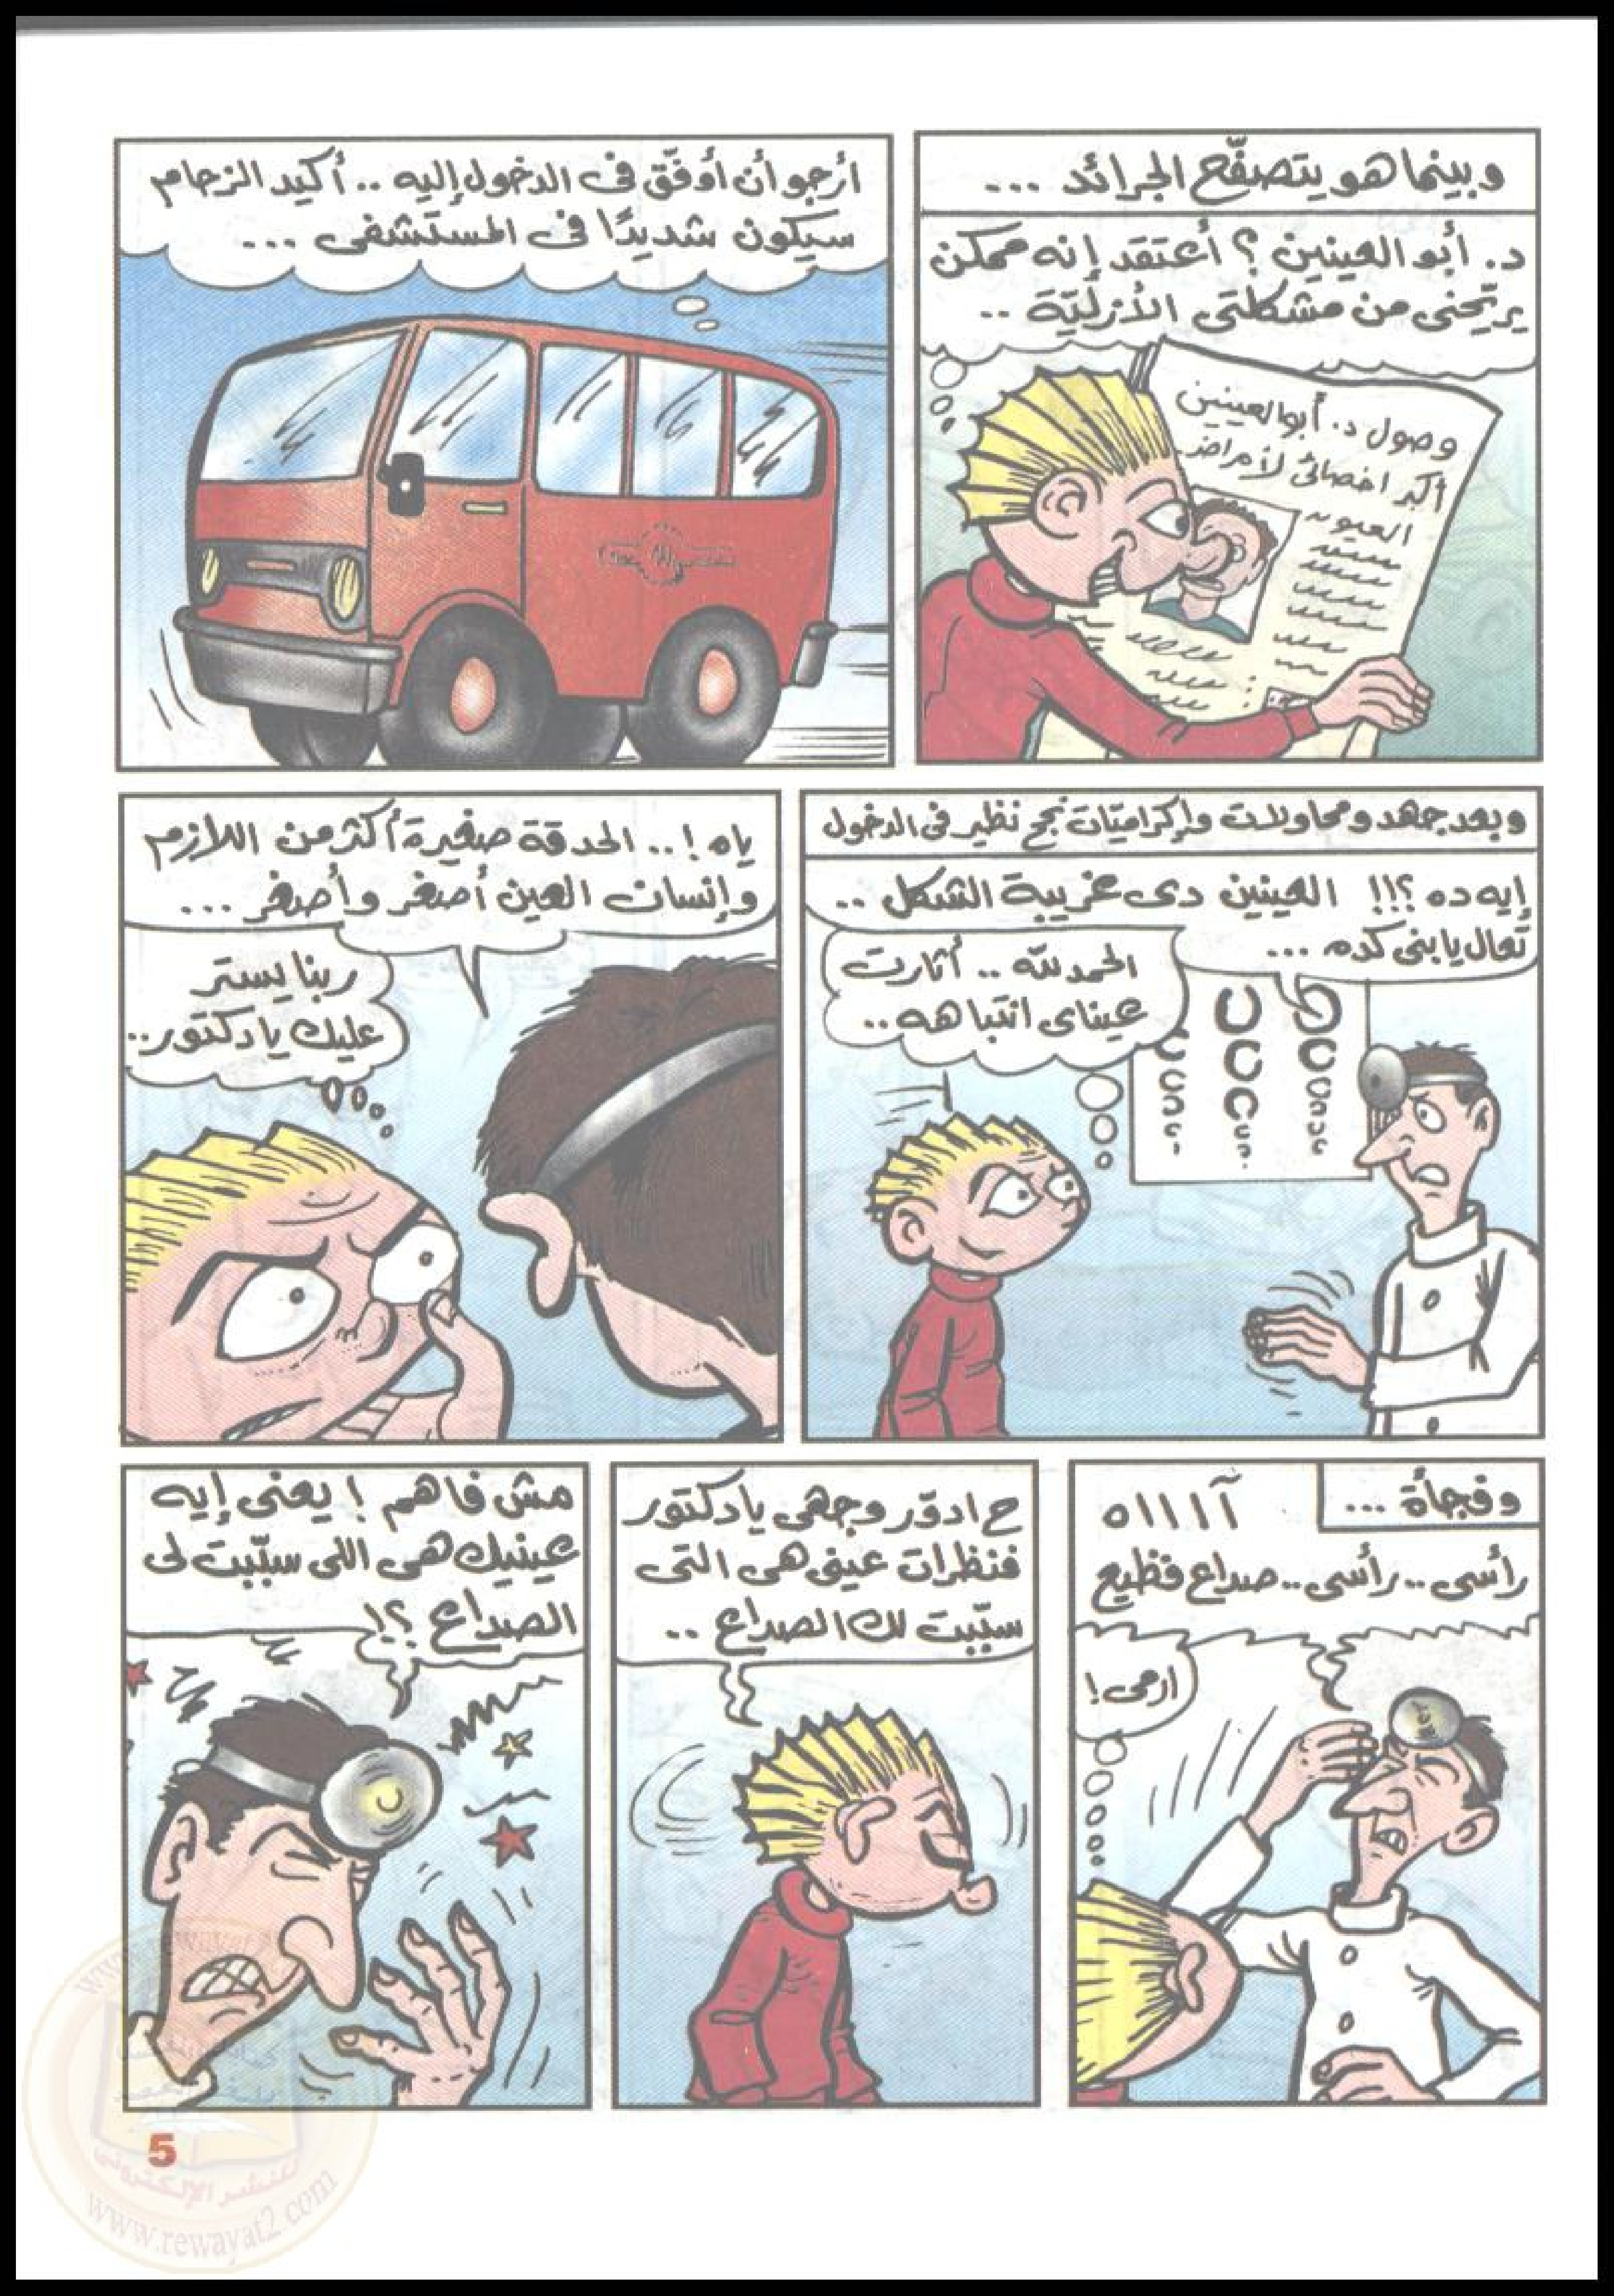 وبينما هو يتصفّح الجرائد ...
د. أبو العينين ؟ أعتقد إنه ممكن
يريّحنى من مشكلتى الأزليّة ..
وصول د. أبو العينين
أكبر اخصائى لأمراض
العيون
أرجو أن أوفّق فى الدخول إليه .. أكيد الزحام
سيكون شديدًا فى المستشفى ...
وبعد جهد ومحاولات وإكراميّات نجح نظير فى الدخول
إيه ده ؟!!! العينين دى غريبة الشكل ..
تعال يا بنى كده ...
الحمد للّه .. أثارت
عيناى انتباهه ..
ياه ! .. الحدقة صغيرة أكثر من اللازم
وإنسان العين أصغر وأصغر ...
ربنا يستر
عليك يا دكتور ..
وفجأة ...
آاااه
رأسى .. رأسى .. صداع فظيع
ارمى !
ح ادوّر وجهى يا دكتور
فنظرات عينى هى التى
سبّبت لك الصداع ..
مش فاهم ! يعنى إيه
عينيك هى اللى سبّبت لى
الصداع ؟!
5
للنشر الإلكترونى
www.rewayat2.com